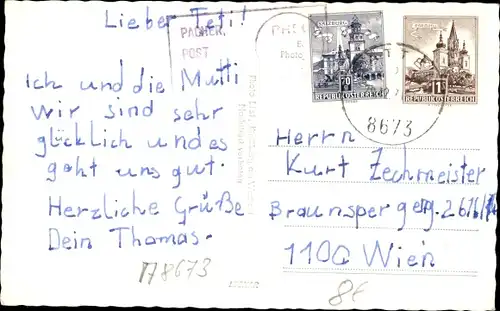 Lieber Teti!
PACKER.
POST
SALZBURG
70
REPUBLIK ÖSTERREICH
1
REPUBLIK ÖSTERREICH
8673
Ich und die Mutti
wir sind sehr
glücklich und es
geht uns gut.
Herzliche Grüße
Dein Thomas.
Herrn
Kurt Zechmeister
Braunsperg
1100 Wien
A8673
8€